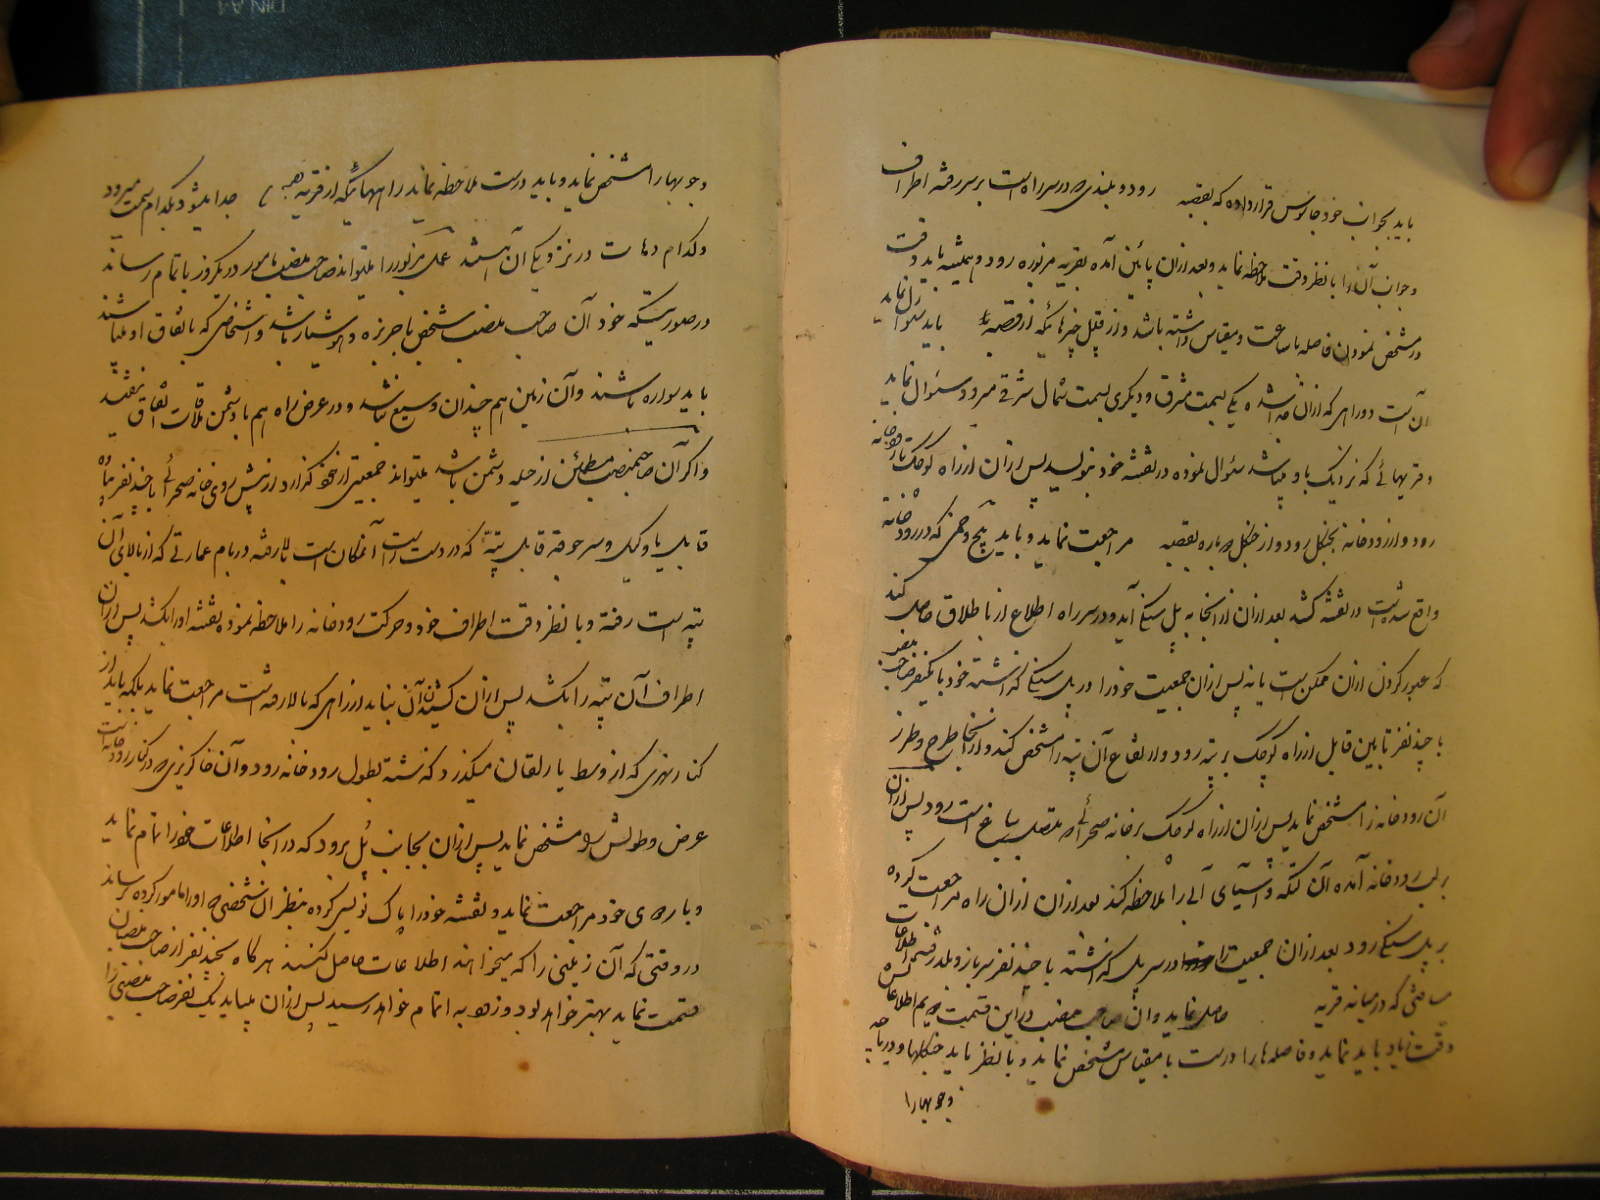 باید بجوانب خود جاسوس قرار داده که بقصبه رود و بلندی که در سر راه است بر سر رفته اطراف
و جوانب آن را با نظر دقت ملاحظه نماید و بعد از ان پائین آمده بقریه مزبوره رود و همیشه باید دقت
در مشخص نمودن فاصله با ساعت و مقیاس داشته باشد و از قبیل چیزهائیکه از قصبه باید سئوال نماید
آن است دو راهی که از ان یکی بسمت مشرق و دیگری بسمت شمال شرقی میرود سئوال نماید
و قریهائی که نزدیک باو میباشد سئوال نموده در نقشه خود بنویسد پس از ان از راه کوچک تا رودخانه
رود و از رودخانه بجنگل رود و از جنگل دوباره بقصبه مراجعت نماید و باید پیچ و خمی که در رودخانه
واقع شده است در نقشه کشد بعد از ان از انجا به پل سنگی آید و در سر راه اطلاع از باطلاق حاصل کند
که عبور کردن از ان ممکن است یا نه پس از ان جمعیت خود را در پل سنگی گذاشته خود با یکنفر صاحب منصب
با چند نفر تابین قابل از راه کوچک بر تپه رود و ارتفاع آن تپه را مشخص کند و از انجا طرح و طرز
آن رودخانه را مشخص نماید پس از ان از راه کوچک بر خانه صحرائی که متصل بباغ است رود پس از ان
بر لب رودخانه آمده آن تنگه و آسیای آبی را ملاحظه کند بعد از ان از ان راه مراجعت کرده
بر پل سنگی رود بعد از ان جمعیت را در سر پل گذاشته با چند نفر سرباز و بلد رفته اطلاعات
مسافتی که در میانه قریه حاصل نماید و ان صاحب منصب در این قسمت هم اطلاعات
دقت زیاد باید نماید و فاصله ها را درست با مقیاس مشخص نماید و با نظر باید جنگلها و دریاچه
و جوبها را
و جوبها را مشخص نماید و باید درست ملاحظه نماید راههائیکه از قریه جدا میشود بکدام سمت میرود
و کدام دهات در نزدیکی آن هستند عمل مزبور را میتواند صاحب منصب مامور در یکروز باتمام رساند
در صورتیکه خود آن صاحب منصب شخص با جربزه و هوشیار باشد و اشخاصی که باتفاق او میباشند
باید سواره باشند و آن زمین هم چندان وسیع نباشد و در عرض راه هم با دشمن ملاقات اتفاق نیفتد
و اگر آن صاحبمنصب مطمئن از حیله دشمن باشد میتواند جمعیتی از خود گذارد در پیش روی خانه صحرائی با چند نفر
قابل یا وکیل و سرجوقه قابل تپه که در دست راست آنمکان است بالا رفته در بام عمارتی که از بالای آن
تپه است رفته و با نظر دقت اطراف خود و حرکت رودخانه را ملاحظه نموده نقشه او را بکشد پس از ان
اطراف آن تپه را بکشد پس از ان کشیدن آن نباید از راهی که بالا رفته است مراجعت نماید بلکه باید از
کنار نهری که از وسط باطلقان میگذرد گذشته بطول رودخانه رود و آن خاکریزی که در کنار رودخانه است
عرض و طولش را مشخص نماید پس از ان بجانب پل برود که در انجا اطلاعات خود را تمام نماید
و باردوی خود مراجعت نماید و نقشه خود را پاک نویس کرده بنظر ان شخصی که او را مامور کرده برساند
در وقتی که آن زمینی را که میخواهند اطلاعات حاصل کنند هرگاه بچند نفر از صاحب منصبان
قسمت نماید بهتر خواهد بود و زود به اتمام خواهد رسید پس از ان میباید یک نفر صاحب منصبی را